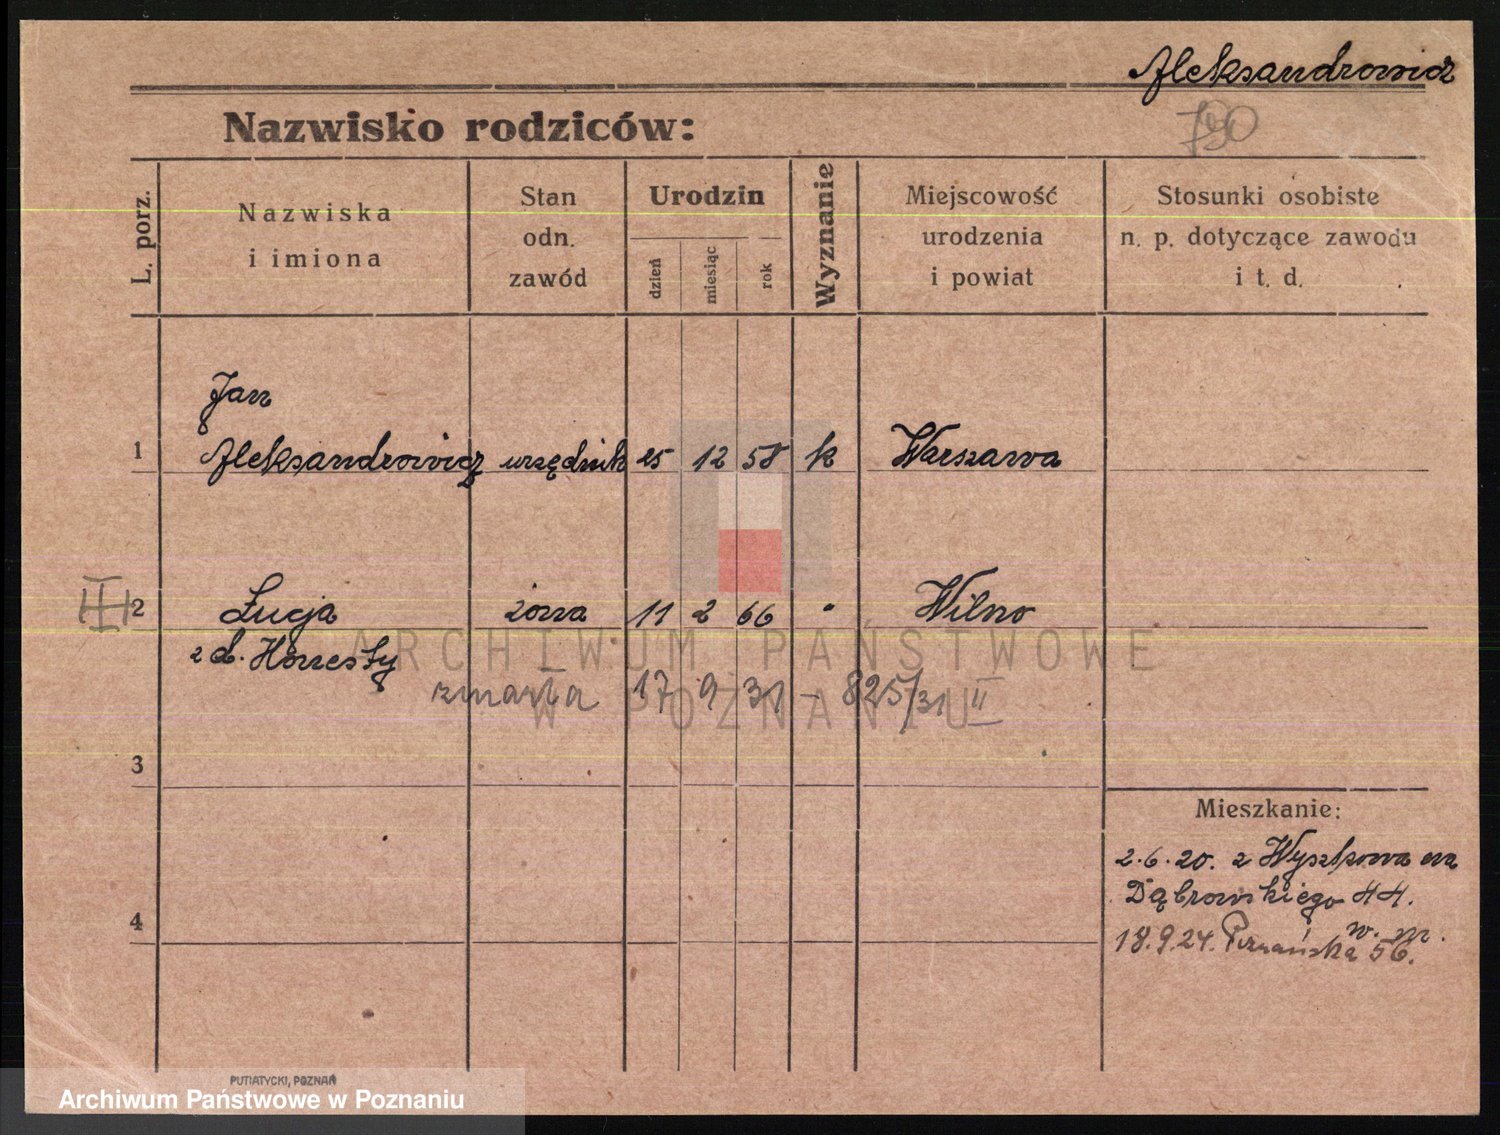 Aleksandrowicz
Nazwisko rodziców:
790
L. porz.
Nazwiska
i imiona
Stan
odn.
zawód
Urodzin
dzień
miesiąc
rok
Wyznanie
Miejscowość
urodzenia
i powiat
Stosunki osobiste
n. p. dotyczące zawodu
i t. d.
Jan
1 Aleksandrowicz urzędnik 25 12 58 k Warszawa
2 Łucja żona 11 2 66 " Wilno
z d. Honesty
zmarła 17 9 31 – 825/31 II
3
Mieszkanie:
2.6.20. z Wyszkowa na
Dąbrowskiego 44.
w. m.
18.9.24. Poznańska 56.
4
ARCHIWUM PAŃSTWOWE
W POZNANIU
PUTIATYCKI, POZNAŃ
Archiwum Państwowe w Poznaniu